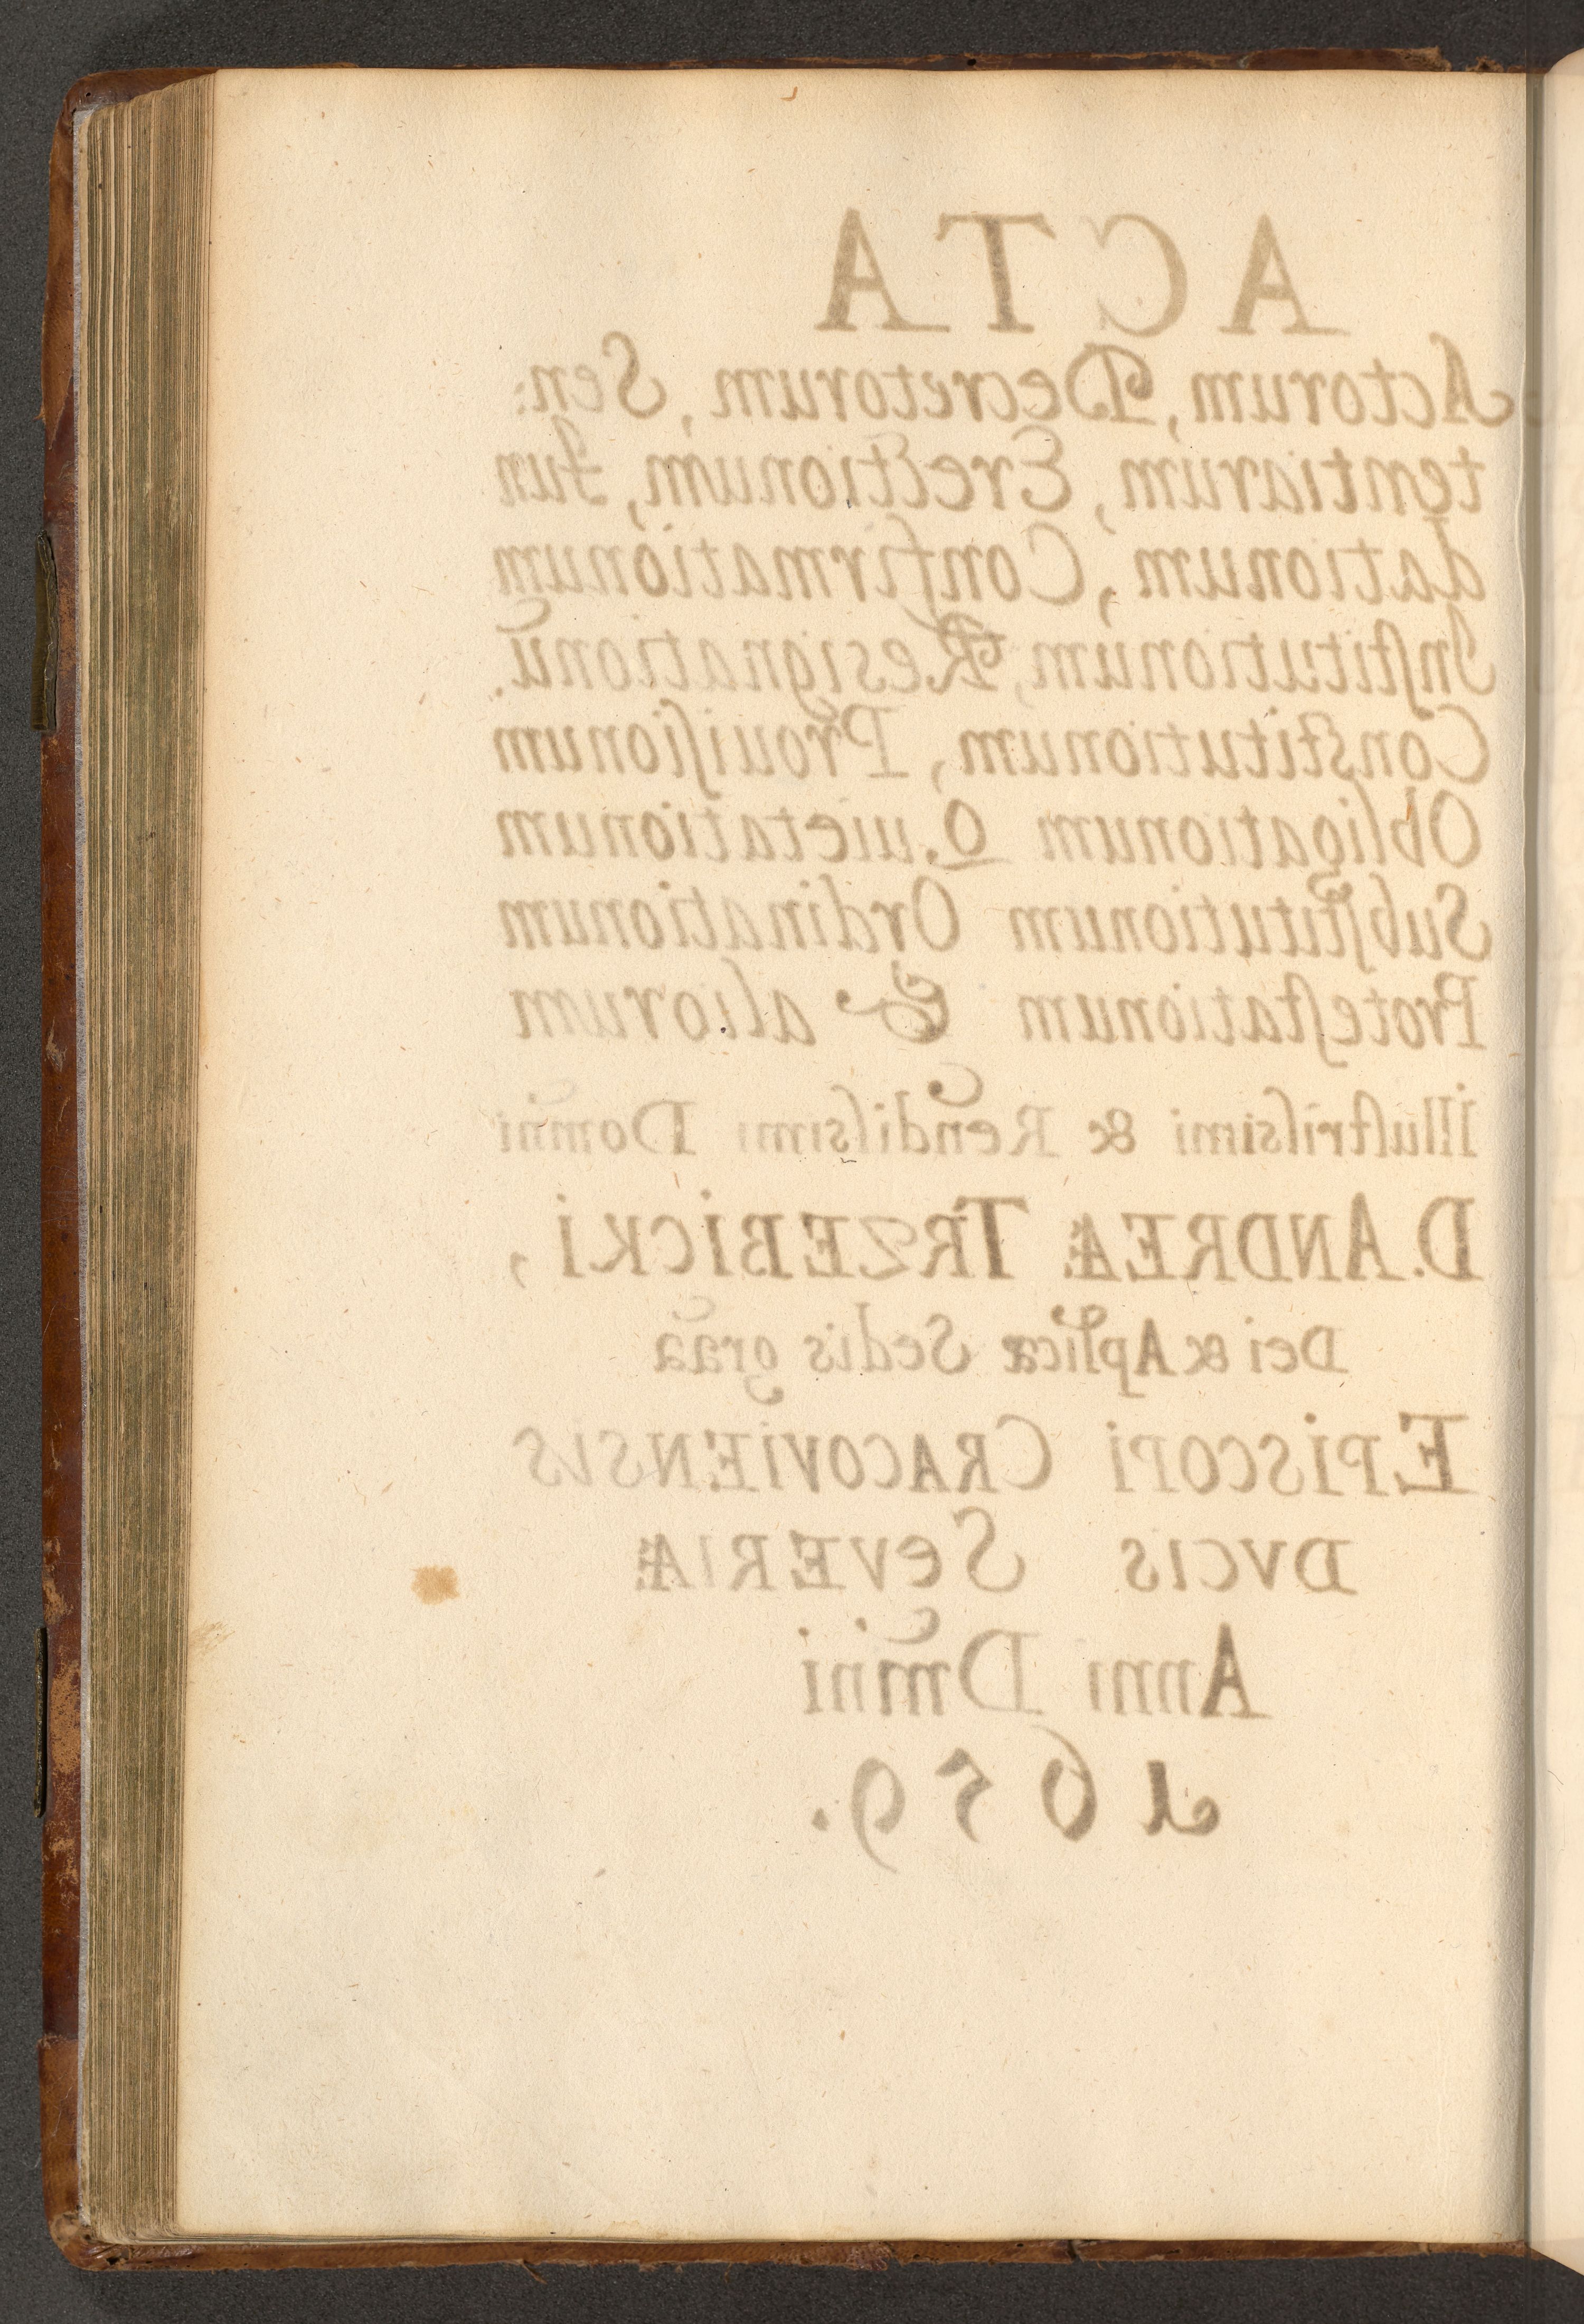 ACTA
Actorum, Decretorum, Sen:
tentiarum, Erectionum, Fun
dationum, Confirmationum
Inſtitutionum, Resignationū.
Conſtitutionum, Prouiſionum
Obligationum Quietationum
Subſtitutionum Ordinationum
Proteſtationum & aliorum
Illuſtriſsimi & Rendiſsimi Domini
D. ANDREÆ TRZEBICKI,
Dei & Aplicæ Sedis graã
EPISCOPI CRACOVIENSIS
DVCIS SEVERIÆ
Anni Dmini
1659.